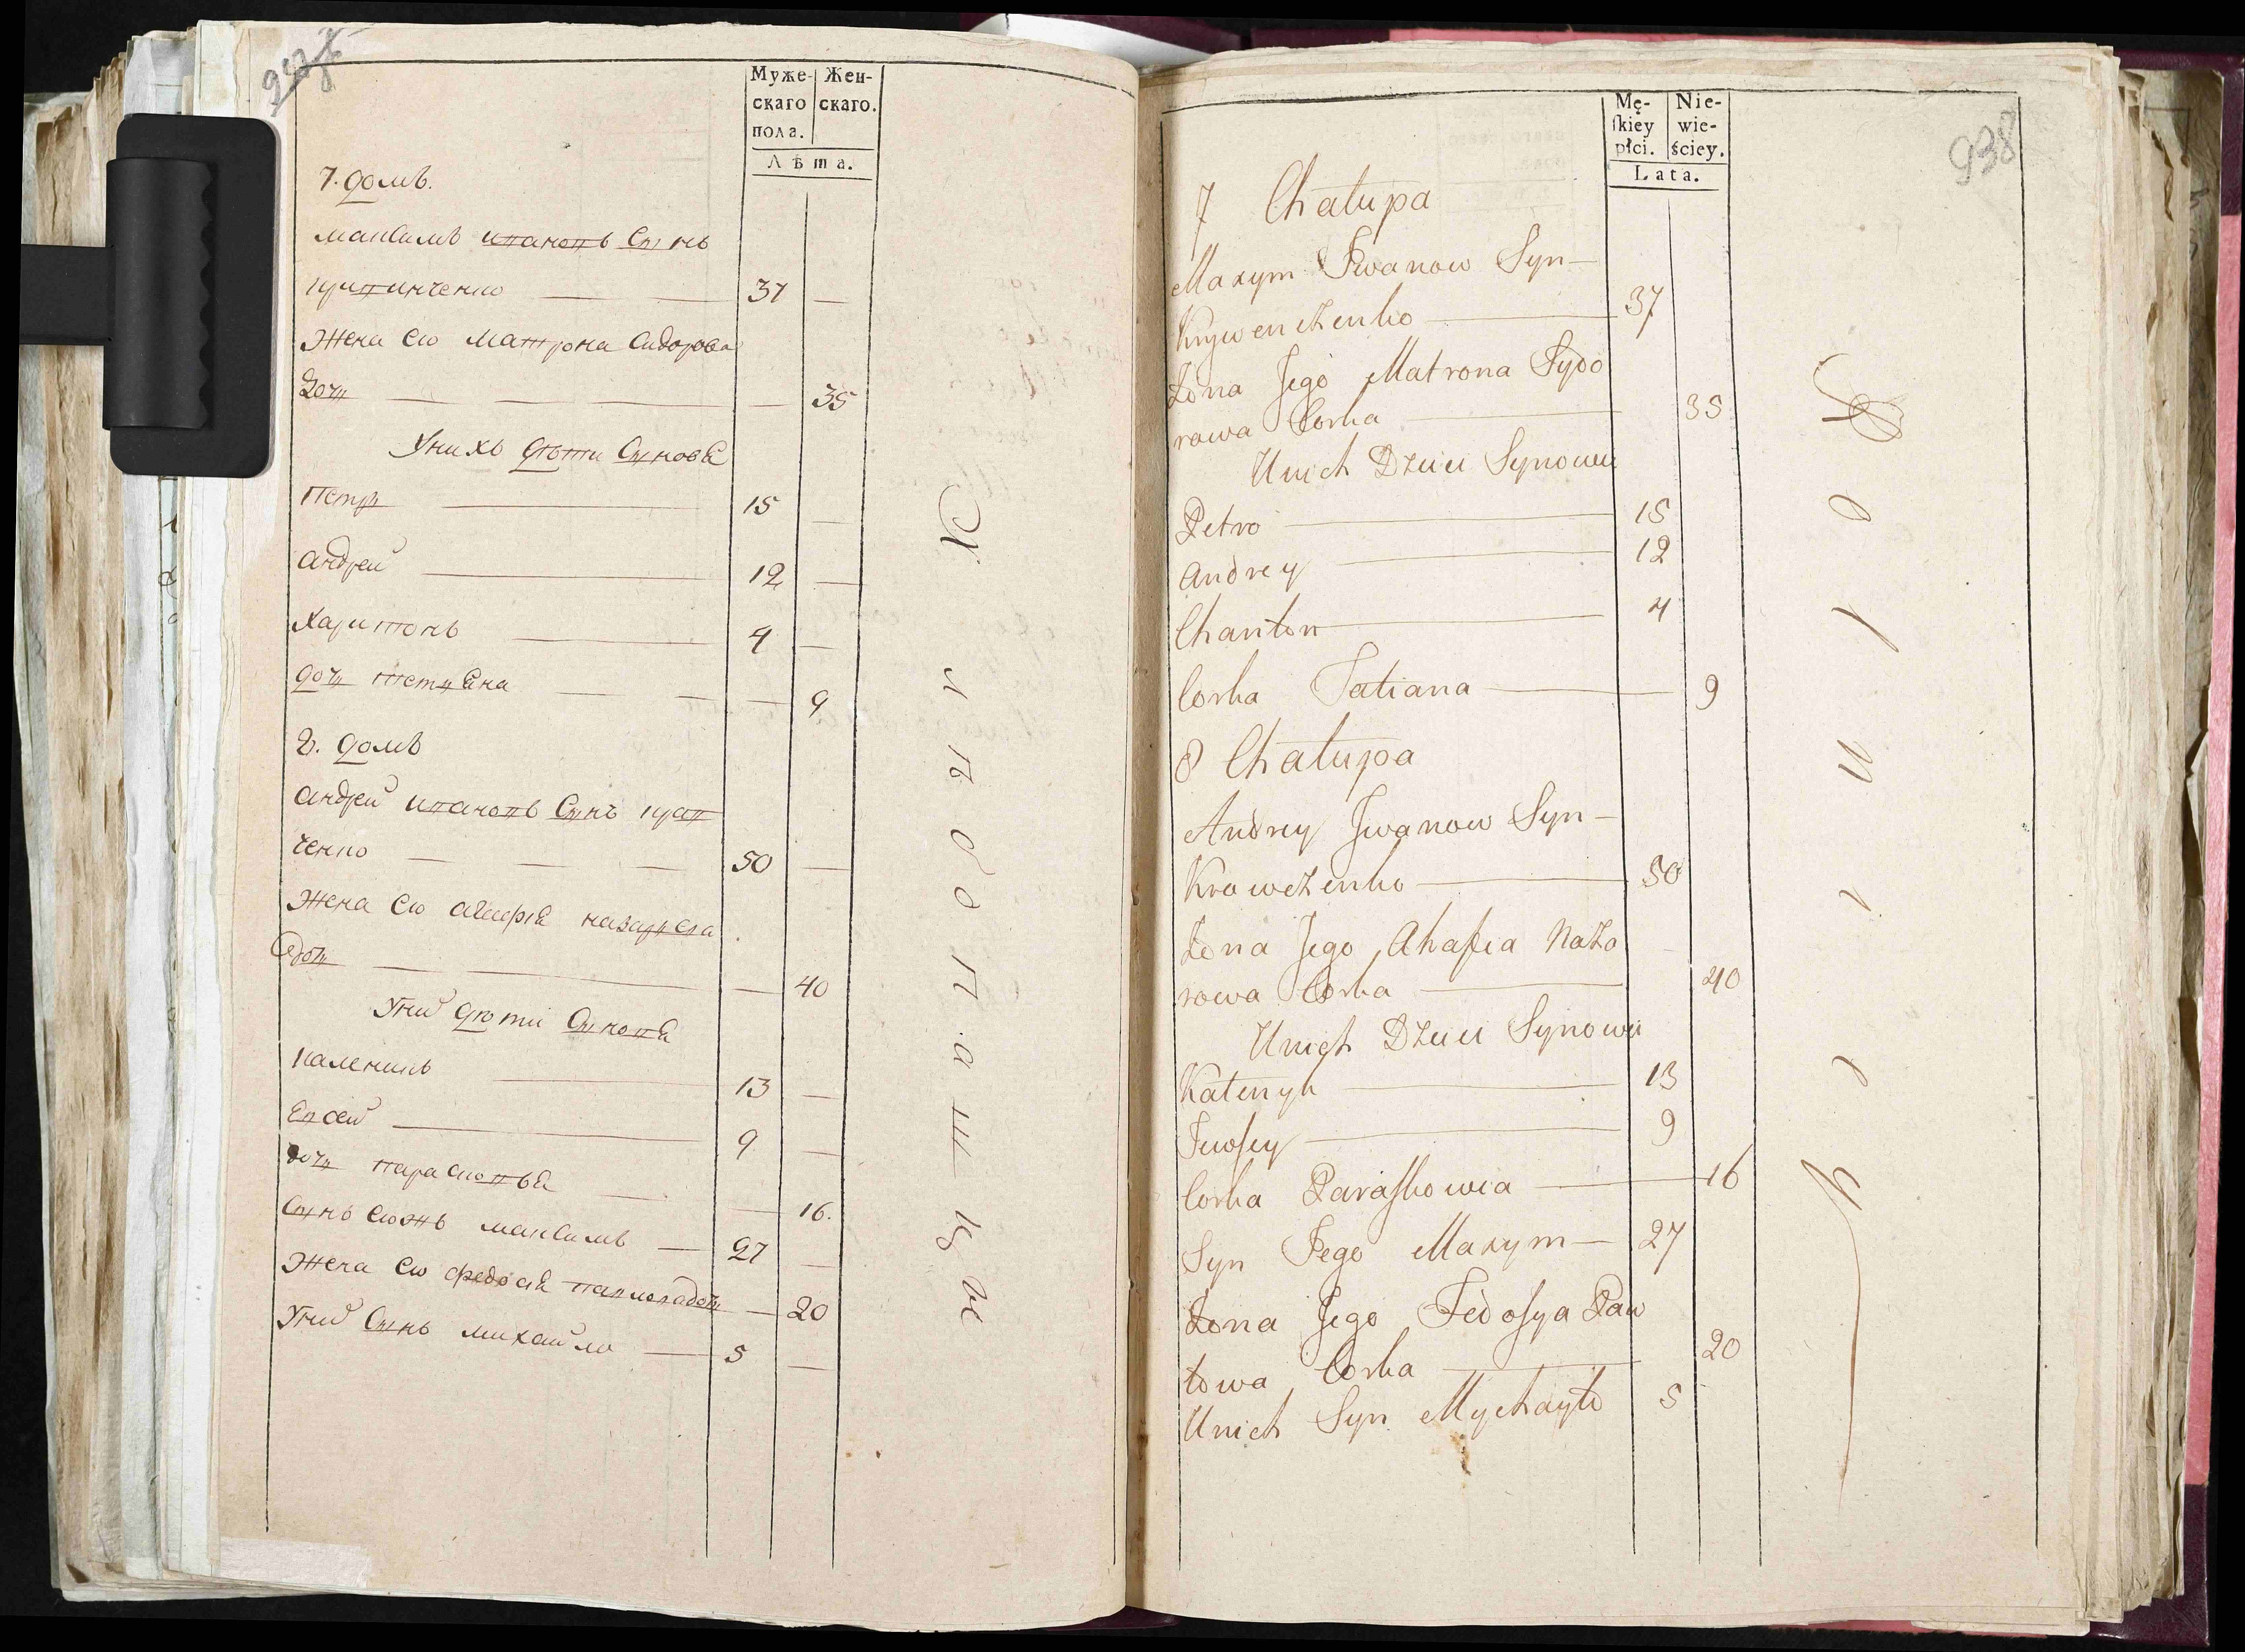 Муже-
скаго
пола.
Жен-
скаго.
Лѣта.
7. домъ.
максимъ ивановъ Сынъ
кривинченко 37
Жена ею матрона Сидорова
доч 35
Унихъ дѣти Синове
Петр 15
андреи 12
Харитонъ 4
доч тетяна 9
8. домъ
андреи ивановъ Синъ крав
ченко 50
Жена ею агафія назарова
доч 40
Уних дѣти Синове
каленикъ 13
Евсей 9
доч парасковья 16.
Синъ еюжъ максимъ 27
Жена ею федосия павловадоч 20
Уних Синъ михайло 5
938
Mę-
skiey
płci.
Nie-
wie-
ściey.
Lata.
7 Chałupa
Maxym Iwanow Syn
Krywenczenko 37
Żona Jego Matrona Sydo
rowa Corka 35
Unich Dzieci Synowie
Petro 15
Andrey 12
Chariton 4
Corka Tatiana 9
8 Chałupa
Andrey Jwanow Syn
Krawczenko 50
Żona Jego Ahafia Naza
rowa Corka 40
Unich Dzieci Synowie
Kałenyk 13
Jewsey 9
Corka Paraskowia 16
Syn Jego Maxym 27
Żona Jego Fedosya Paw
łowa Corka 20
Unich Syn Mychayło 5